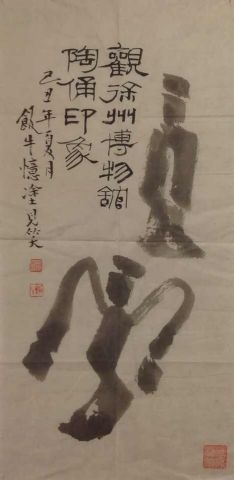 觀徐州博物館
陶俑印象
己丑年夏月
飯牛憶塗見笑